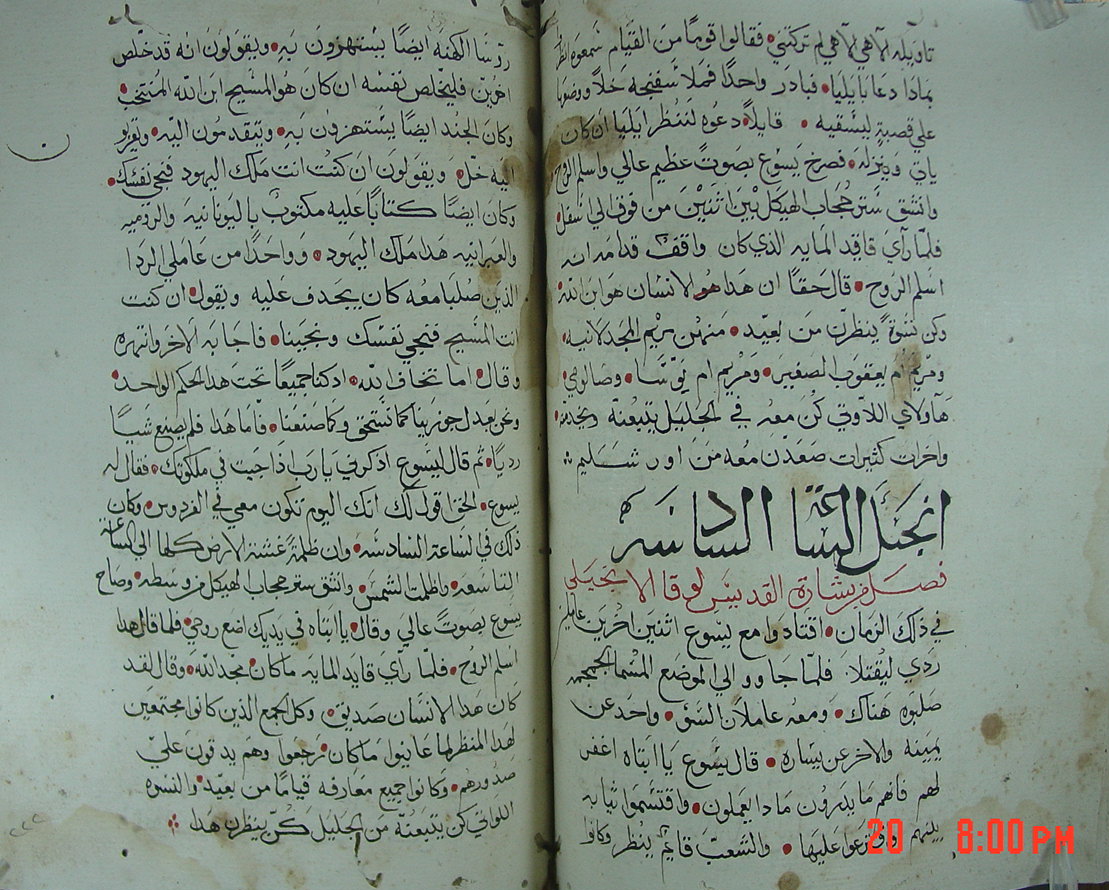 تاويله الاهي الاهي لم تركتني فقالوا قومًا من القيام سمعوه انظر
بمادا دعا بايليا فبادر واحدًا فملا سفنجه خلاً ووضعها
علي قصبة ليسقيه قايلاً دعوه لننظر ايليا ان كان
ياتي وينزله فصرخ يسوع بصوت عظيم عالي واسلم الروح
وانشق ستر حجاب الهيكل بين اثنين من فوق الي اسفل
فلما رآي قايد المايه الذي كان واقف قدامه انه
اسلم الروح قال حقًا ان هدا هو الانسان هو ابن الله
وكن نسوة ينظرن من بعيد منهن مريم المجدلانيه
ومريم ام يعقوب الصغير ومريم ام يوسا وصالومي
هاولاي اللاوتي كن معه في الجليل يتبعنه ويخدمنه
واخرات كثيرات صعدن معه من اورشليم
انجيل الساعة السادسه
فصل من بشارة القديس لوقا الانجيلي
في ذلك الزمان اقتادوا مع يسوع اثنين اخرين عاملين
ردي ليقتلا فلما جاوو الي الموضع المسما الجمجمه
صلبوه هناك ومعه عاملان الشق واحد عن
يمينه والاخر عن يساره قال يسوع يا ابتاه اغفر
لهم فانهم ما يدرون مادا يعملون واقتسموا ثيابه
بينهم واقترعوا عليها والشعب قايم ينظر وكانوا
20 8:00 PM
روسا الكهنه ايضًا يستهزون به ويقولون انه قد خلص
اخرين فليخلص نفسه ان كان هو المسيح ابن الله المنتخب
وكان الجند ايضًا يستهزون به ويتقدمون اليه ويقربو
اليه خل ويقولون ان كنت انت ملك اليهود فنجي نفسك
وكان ايضًا كتابًا عليه مكتوب باليونانية والروميه
والعبرانيه هدا ملك اليهود وواحدًا من عاملي الردا
الذين صلبا معه كان يجدف عليه ويقول ان كنت
انت المسيح فنجي نفسك ونجينا فاجابه الاخر وانتهره
وقال اما تخاف الله ادكنا جميعًا تحت هدا الحكم الواحد
ونحن بعدل جوزينا كما نستحق وكما صنعنا فاما هدا فلم يصنع شيًا
رديًا ثم قال ليسوع ادكرني يارب اذا جيت في ملكوتك فقال له
يسوع الحق اقول لك انك اليوم تكون معي في الفردوس وكان
ذلك في الساعة السادسه وان ظلمة غشت الارض كلها الي الساعة
التاسعه واظلمت الشمس وانشق ستر حجاب الهيكل من وسطه وصاح
يسوع بصوت عالي وقال يا ابتاه في يديك اضع روحي فلما قال هدا
اسلم الروح فلما رآي قايد المايه ما كان مجد الله وقال لقد
كان هدا الانسان صديق وكل الجمع الذين كانوا مجتمعين
لهدا المنظر لما عاينوا ما كان رجعوا وهم يدقون علي
صدورهم وكانوا جميع معارفه قيامًا من بعيد والنسوه
اللواتي كن يتبعنه من الجليل كن ينظرن هدا